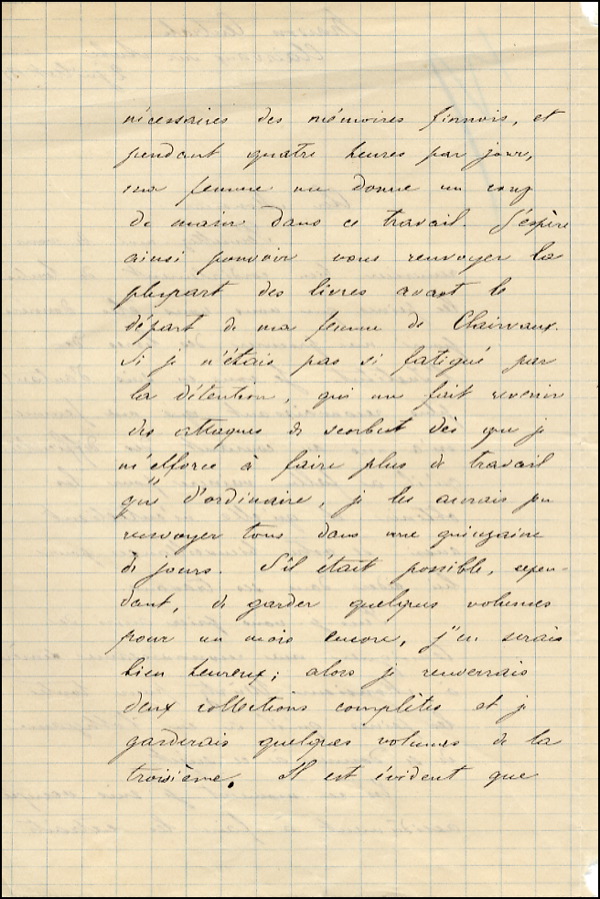 nécessaires des mémoires finnois, et
pendant quatre heures par jour,
ma femme me donne un coup
de main dans ce travail. J'espère
ainsi pouvoir vous renvoyer la
plupart des livres avant le
départ de ma femme de Clairvaux.
Si je n'étais pas si fatigué par
la détention, qui me fait revenir
des attaques de scorbut dès que je
m'efforce à faire plus de travail
qu'à d'ordinaire, je les aurais pu
renvoyer tous dans une quinzaine
de jours. S'il était possible, cepen-
dant, de garder quelques volumes
pour un mois encore, j'en serais
bien heureux; alors je renverrais
deux collections complètes et je
garderais quelques volumes de la
troisième. Il est évident que